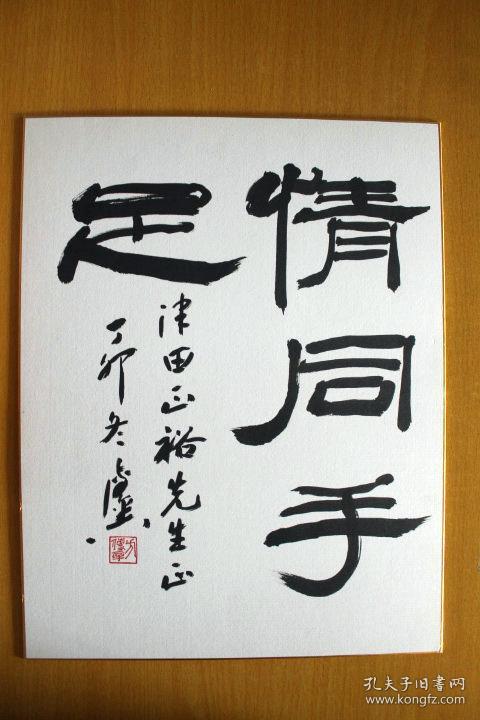 情同手
足
津田正裕先生正
丁卯冬
孔夫子旧书网
www.kongfz.com